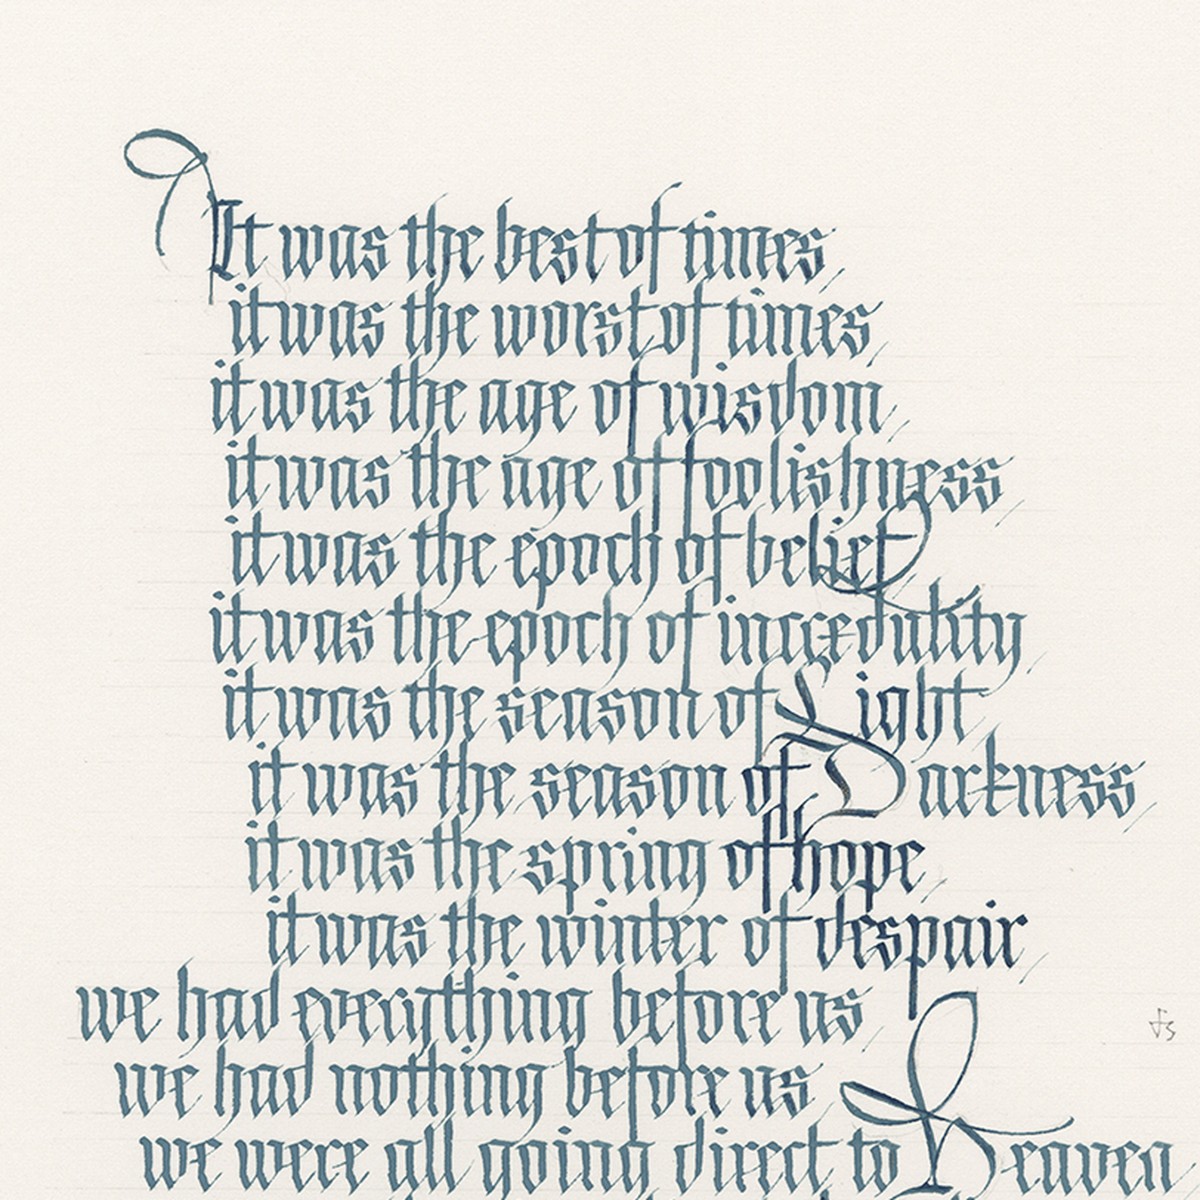 It was the best of times,
it was the worst of times,
it was the age of wisdom,
it was the age of foolishness,
it was the epoch of belief
it was the epoch of incredulity,
it was the season of Light,
it was the season of Darkness,
it was the spring of hope,
it was the winter of despair,
we had everything before us,
we had nothing before us
we were all going direct to Heaven,
fs